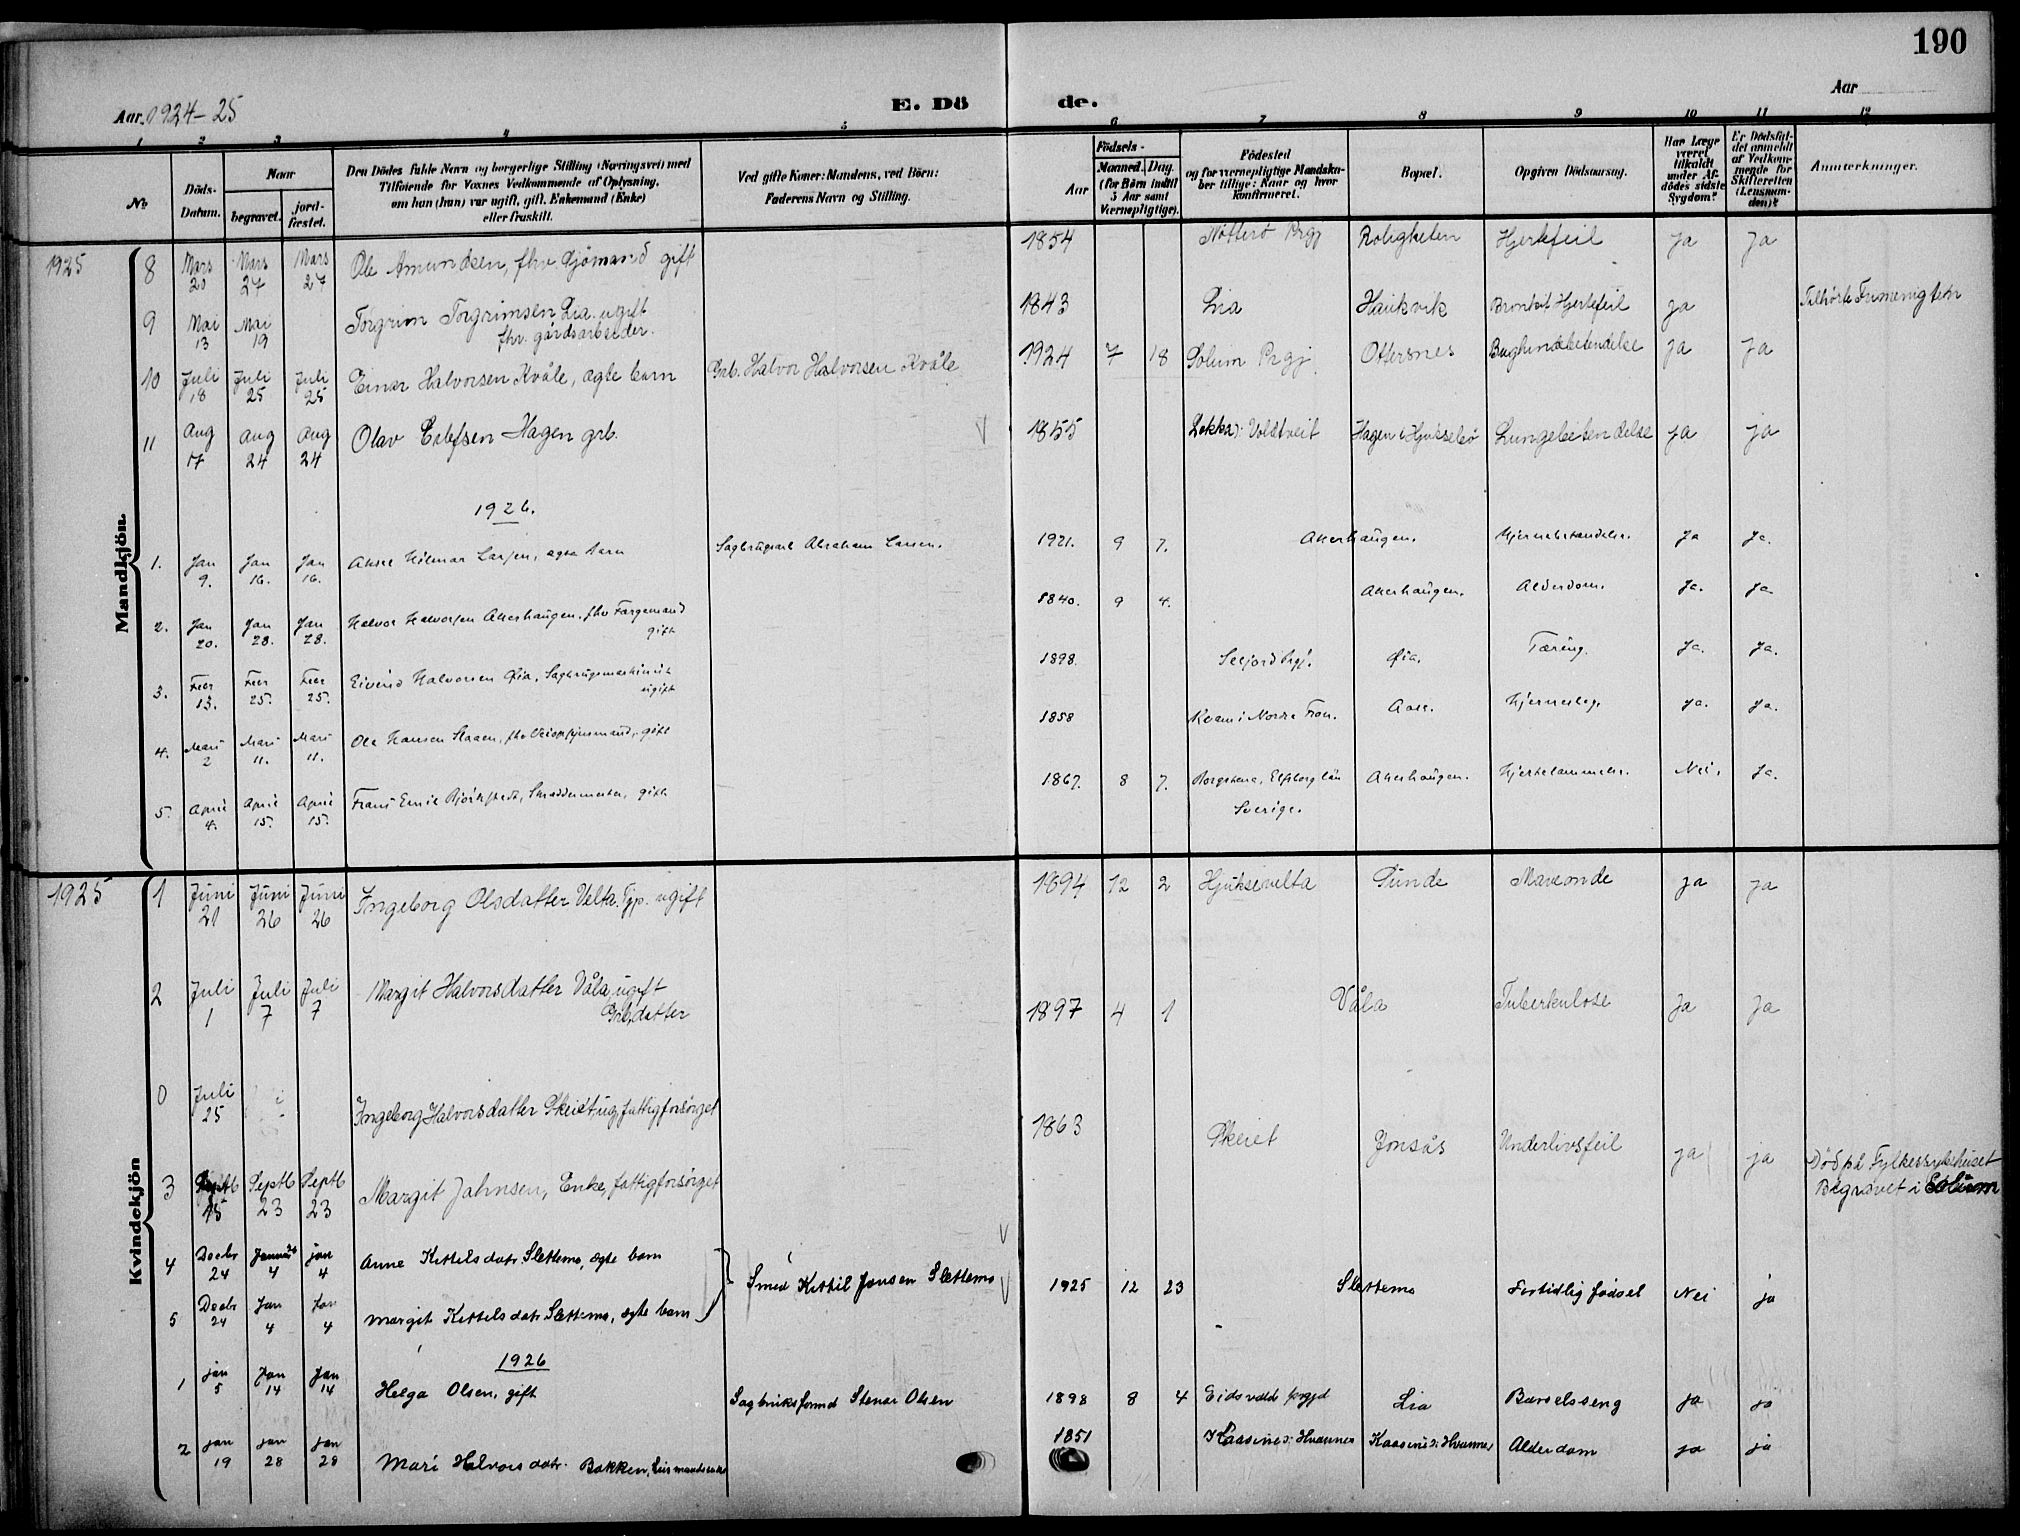 190
Aar 1924-25
E. Dö
de.
Aar
1 2 3 4 5 6 7 8 9 10 11 12
No.
Döds-Datum.
Naar
begravet.
jord-fæstet.
Den Dödes fulde Navn og borgerlige Stilling (Næringsvei) med
Tilföiende for Voxnes Vedkommende af Oplysning,
om han (hun) var ugift, gift, Enkemand (Enke)
eller fraskilt.
Ved gifte Koner: Mandens, ved Börn:
Faderens Navn og Stilling.
Födsels-
Aar
Maaned. Dag.
(for Börn indtil
5 Aar samt
Værnepligtige).
Födested
og for værnepligtige Mandska-
ber tillige: Naar og hvor
konfirmeret.
Bopæl.
Opgiven Dödsaarsag.
Har Læge
været
tilkaldt
under Af-
dödes sidste
Sygdom?
Er Dödsfal-
det anmeldt
af Vedkom-
mende for
Skifteretten
(Lensman-
den)?
Anmærkninger.
Mandkjön.
1925 8 Mars 20 Mars 27 Mars 27 Ole Amundsen, fhv. Sjömand gift 1854 Nötterö Prgj Roligheten Hjertefeil Ja Ja
9 Mai 13 Mai 19 Torgrim Torgrimsen Lia. ugift
fhv. gårdsarbeider. 1843 Lia Haukvik Bronkit Hjertefeil Ja Tilhörte Frimenigheten
10 Juli 18 Juli 25 Juli 25 Einar Halvorsen Kvåle, ægte barn Grb. Halvor Halvorsen Kvåle 1924 7 18 Solum Prgj. Ottersnes Bughindebetendelse Ja Ja
11 Aug 17 Aug 24 Aug 24 Olav Hagen grb. 1855 Voldtveit Hagen i Hjuksebö Lungebetendelse Ja Ja
1926.
1. Jan 9. Jan 16. Jan 16. Hilmar Larsen, ægte barn Abraham Larsen. 1921. 9 7. Akerhaugen. Hjernebetændelse. Ja Ja.
2. Jan 20. Jan 28. Jan 28. Halvor Halvorsen Akerhaugen. fhv Færgemand
gift 1840. 9 4. Akerhaugen. Alderdom. Ja. Ja.
3. Febr 13. Febr 25. Febr 25. Eivind Halvorsen Øia, Sagbrugsmaskinist
ugift 1898. Seljord Prgj. Øia. Tæring. Ja. Ja.
4. Mars 2 Mars 11. Mars 11. Ole Hansen gift 1858 Kvam i Nordre Fron. Ja. Ja.
5. April 4. April 15. April 15. Frans Emil Björkstedt, Skræddermester, gift 1867. 8 7. Elfsborg län
Sverige. Akerhaugen. Hjertelammelse. Nei. Ja.
Kvindekjön
1925 1 Juni 21 Juni 26 Juni 26 Ingeborg Olsdatter Velta. Tjp. ugift 1894 12 2 Hjuksevelta Sunde Maveonde Ja Ja
2 Juli 1 Juli 7 Juli 7 Margit Halvorsdatter Våla, ugift
Grb.datter 1897 4 1 Våla Tuberkulose Ja Ja
0 Juli 25 Ingeborg Halvorsdatter Skeiet, ug, fattigforsörget 1863 Skeiet Jonsås Underlivsfeil Ja Ja Död på Fylkessykehuset
Begravet i Solum
3 Septb 15 Septb 23 Septb 23 Margit Jahnsen, Enke, fattigforsörget
4 Decbr 24 Januar 4 jan 4 Anne Kittilsdatr. Slettemo, ægte barn Smed Kittil Jonsen Slettemo 1925 12 23 Slettemo Fortidlig födsel Nei ja
5 Decbr 24 Jan 4 Jan 4 Margit Kittelsdatr. Slettemo, ægte barn
1926
1 jan 5 Jan 14 Jan 14 Helga Olsen, gift Sagbruksformd Stenar Olsen 1898 8 4 Eidsvold prgjd Lia Barselsseng ja ja
2 jan 19 jan 28 jan 28 Mari Halvorsdatr. Bakken, 1851 Kaasine Alderdom ja ja